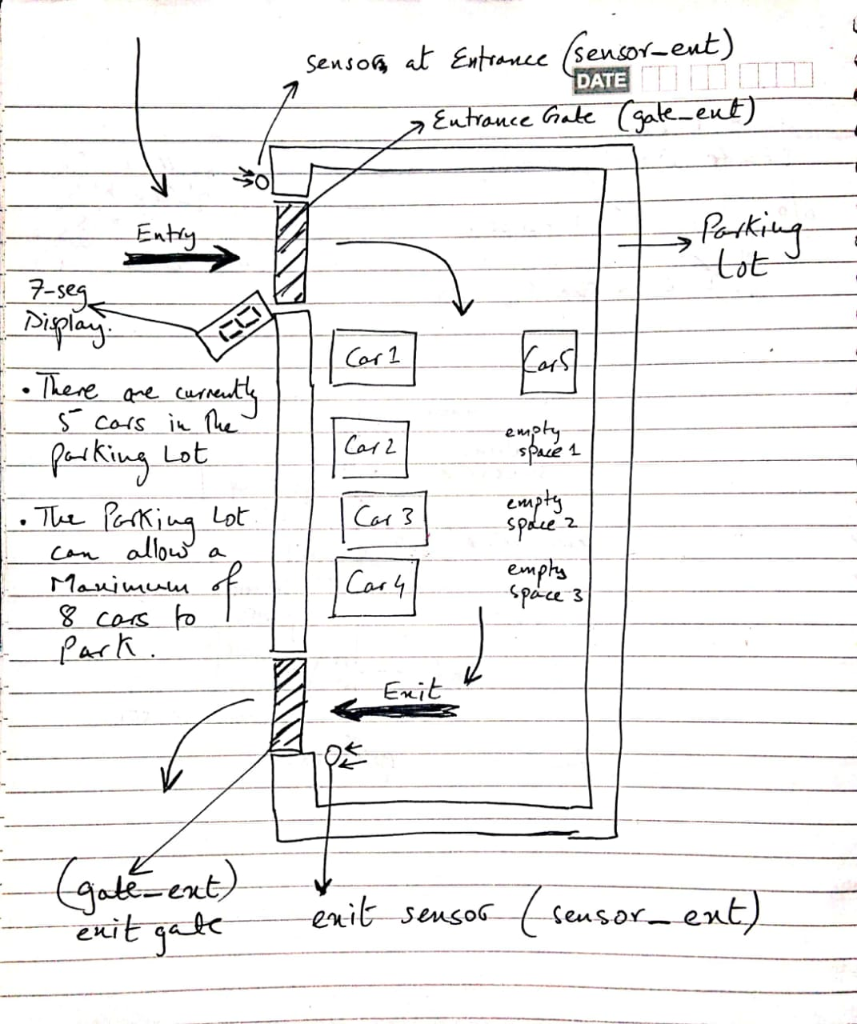 sensor at Entrance (sensor_ent)
DATE
Entrance Gate (gate_ent)
Parking
Lot
Entry
7-seg
Display.
Car 1
Car 5
• There are currently
5 cars in the
parking Lot
Car 2
empty
space 1
• The Parking Lot
can allow a
Maximum of
8 cars to
Park.
Car 3
empty
space 2
Car 4
empty
space 3
Exit
(gate_ext)
exit gate
exit sensor (sensor_ext)